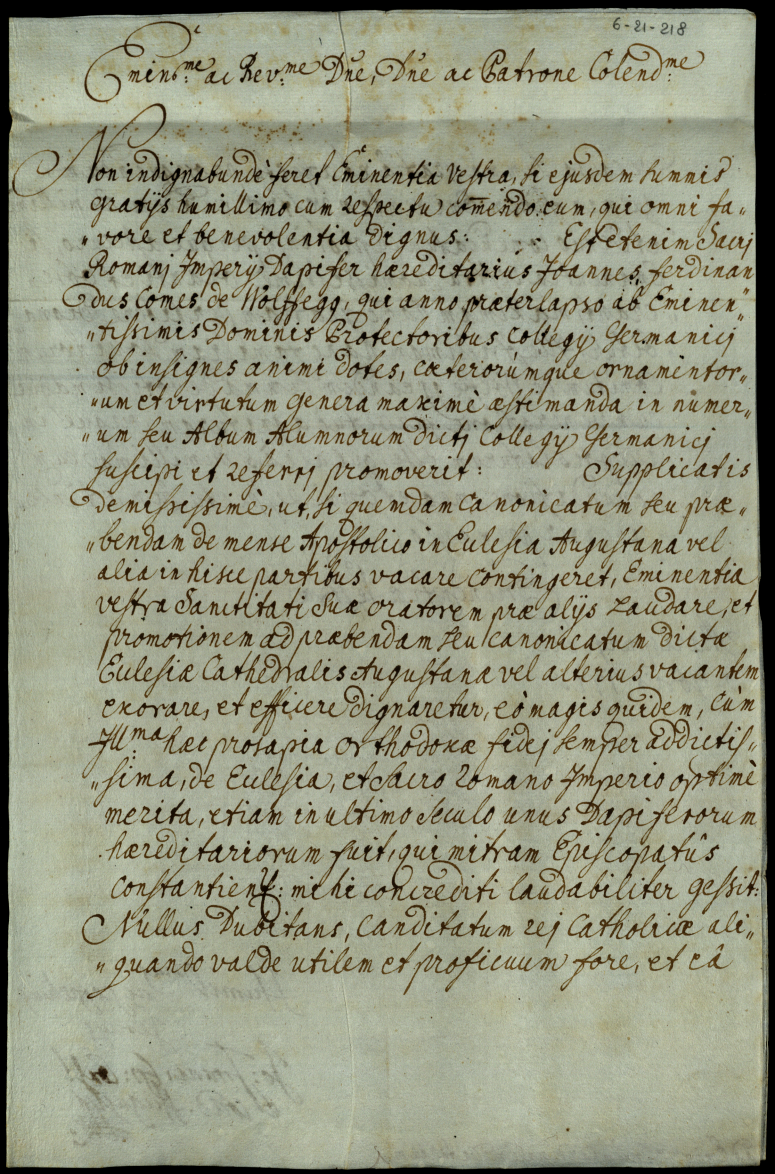 6-21-218
Emin:me ac Rev:me Dñe, Dñe ac Patrone Colend:me
Non indignabundè feret Eminentia Vestra, si ejusdem summis
gratijs humillimo cum respectu com̄endo eum, qui omni fa-
"vore et benevolentia dignus: Est etenim Sacrj
Romanj Imperij Dapifer hæreditarius Joannes ferdinan
dus Comes de Wolffegg, qui anno præterlapso ab Eminen"
"tissimis Dominis Protectoribus Collegij Germanicj
ob insignes animi dotes, cæterorúmque ornamentor-
"um et virtutum genera maximè æstimanda in numer-
"um seu Album Alumnorum dictj Collegij Germanicj
suscipi et referrj promoverit: Supplicatis
demississimè, ut, si quemdam canonicatum seu præ-
"bendam de mense Apostolico in Eulesia Augustana vel
alia in hisce partibus vacare contingeret, Eminentia
vestra Sanctitati Suæ oratorem præ alijs laudare, et
promotionem ad præbendam seu canonicatum dictæ
Eulesiæ Cathedralis Augustanæ vel alterius vacantem
exorare, et efficere dignaretur, eò magis quidem, cùm
Ill:ma hæc prosapia orthodoxæ fidej semper addictis-
"sima, de Eulesia, et Sacro Romano Imperio optimè
merita, etiam in ultimo seculo unus Dapiferorum
hæreditariorum fuit, qui mitram Episcopatûs
Constantiens: mihi concrediti laudabiliter gessit:
Nullus Dubitans, Canditatum rej Catholicæ ali-
"quando valde utilem et proficuum fore, et eâ